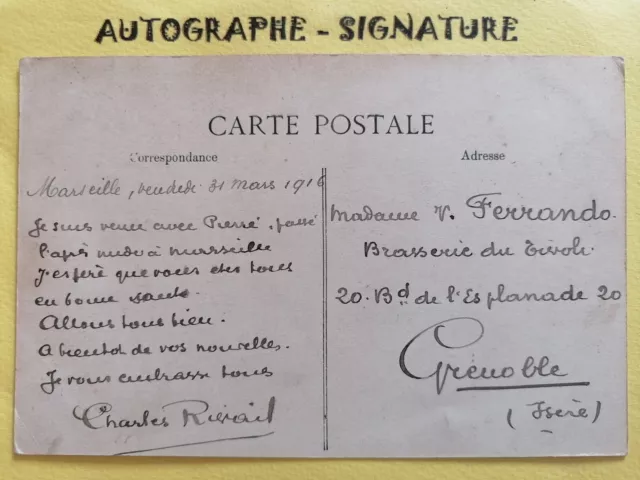 AUTOGRAPHE - SIGNATURE
CARTE POSTALE
Correspondance
Adresse
Marseille, vendredi 31 mars 1916
Je suis venu avec Pierre, passé
l'après midi à Marseille
J'espère que vous êtes tous
en bonne santé.
Allons tous bien.
A bientot de vos nouvelles.
Je vous embrasse tous
Charles
Madame V. Ferrando
Brasserie du Tivoli
20. Bd de l'Esplanade 20
Grenoble
(Isère)